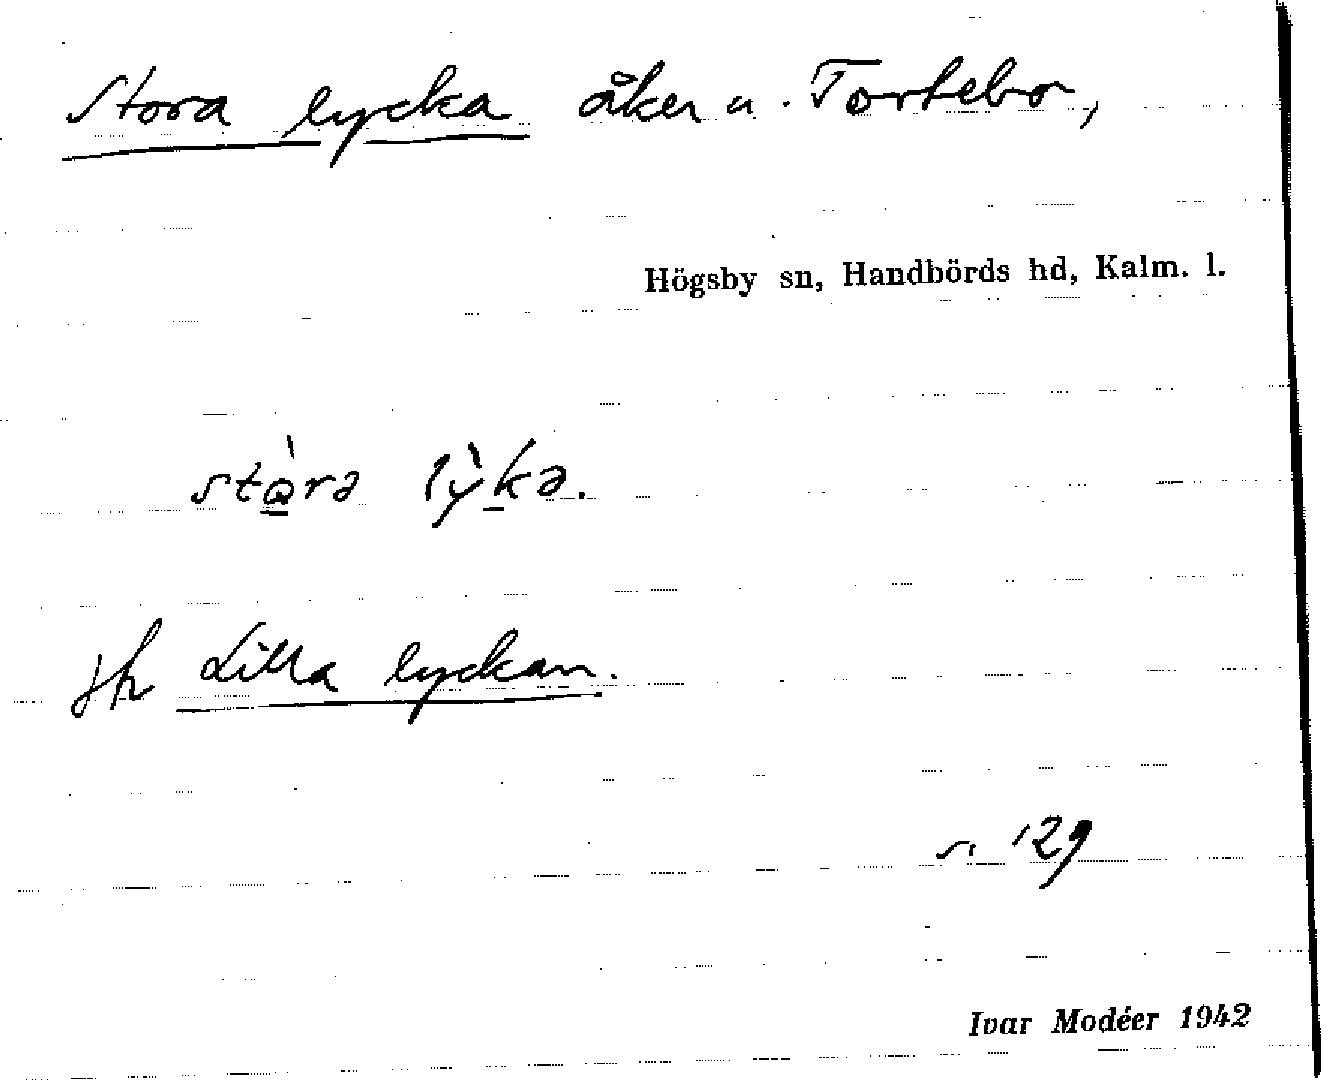 Stora lycka åker u. Tortebo,
Högsby sn, Handbörds hd, Kalm. l.
stò̱rə lỳḵə.
jfr Lilla lyckan.
s. 129
Ivar Modéer 1942